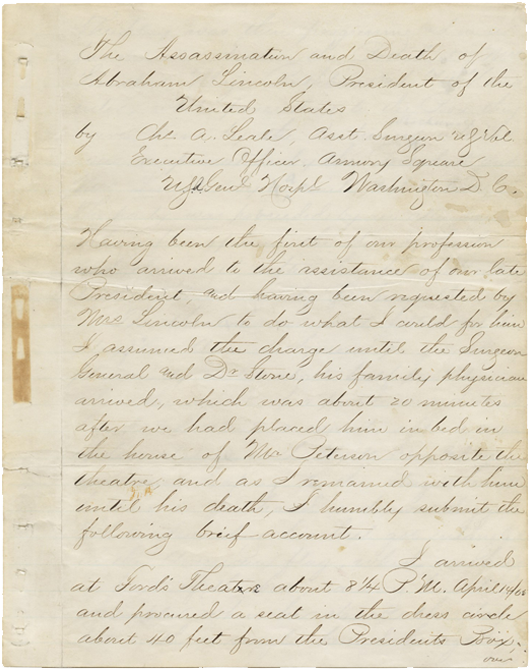 The Assassination and Death of
Abraham Lincoln, President of the
United States
by Chs A. Leale, Asst. Surgeon U.S. Vol
Executive Officer Armory Square
U.S. Genl Hospl Washington D. C.
Having been the first of our profession
who arrived to the assistance of our late
President, and having been requested by
Mrs Lincoln to do what I could for him
I assumed the charge until the Surgeon
General and Dr Stone, his family physician
arrived, which was about 20 minutes
after we had placed him in bed in
the house of Mr Peterson opposite the
theatre, and as I remained with him
until his death, I humbly submit the
following brief account.
I arrived
at Ford's Theatre about 8 1/4 P. M. April 14/65
and procured a seat in the dress circle
about 40 feet from the Presidents Box.
over